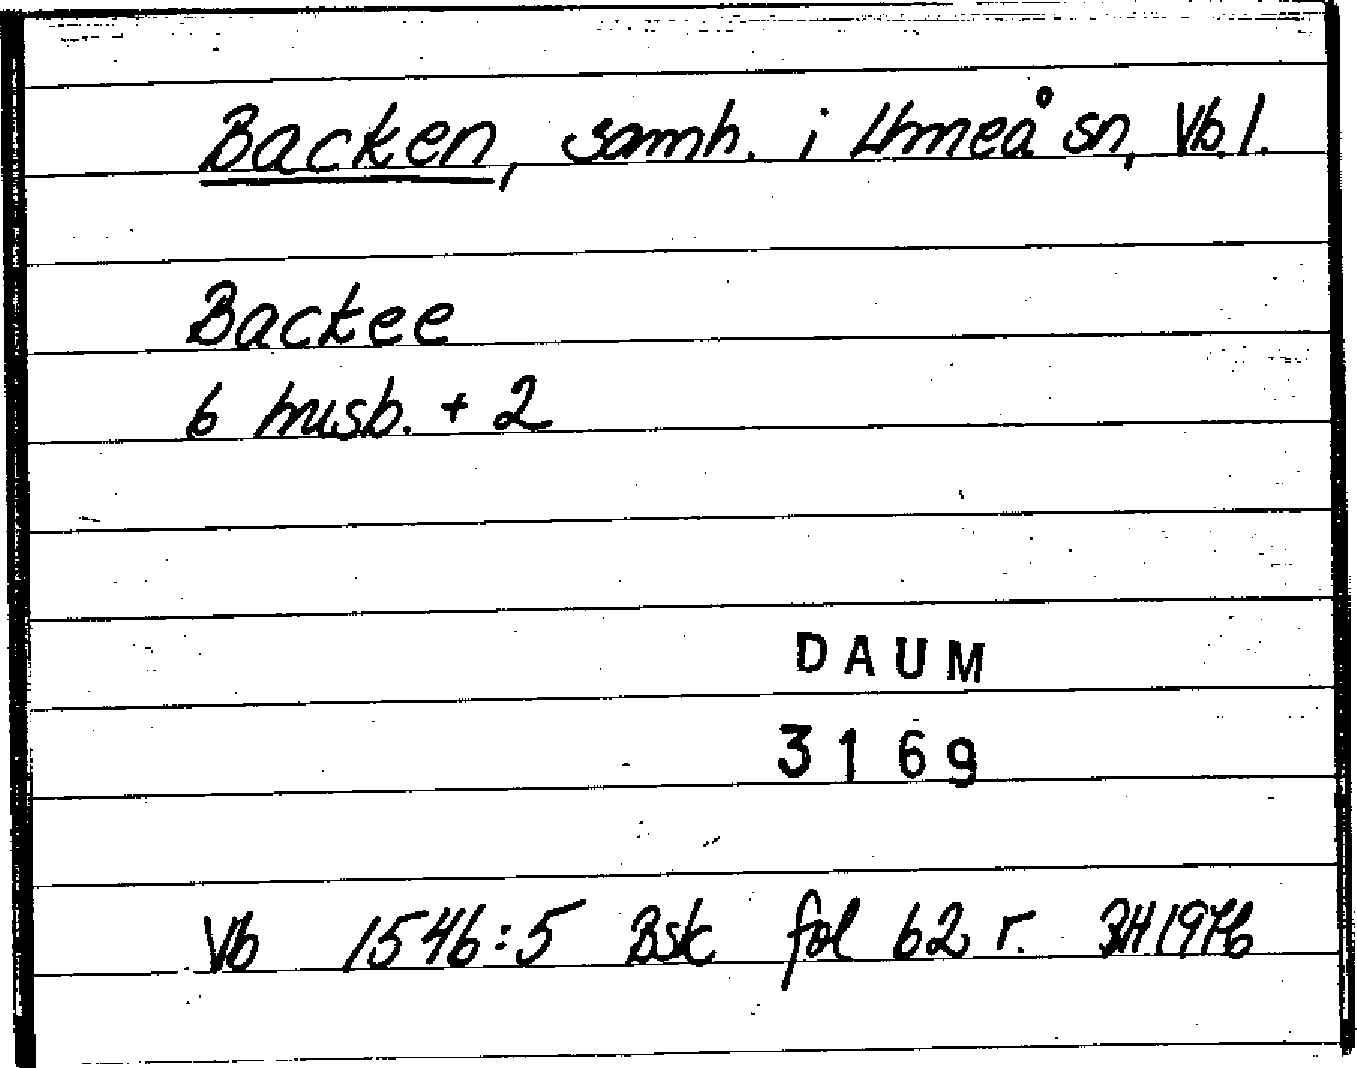 Backen, samh. i Umeå sn, Vb. l.
Backee
6 husb. + 2
DAUM
3169
Vb 1546:5 Bsk fol 62 r. BH 1976